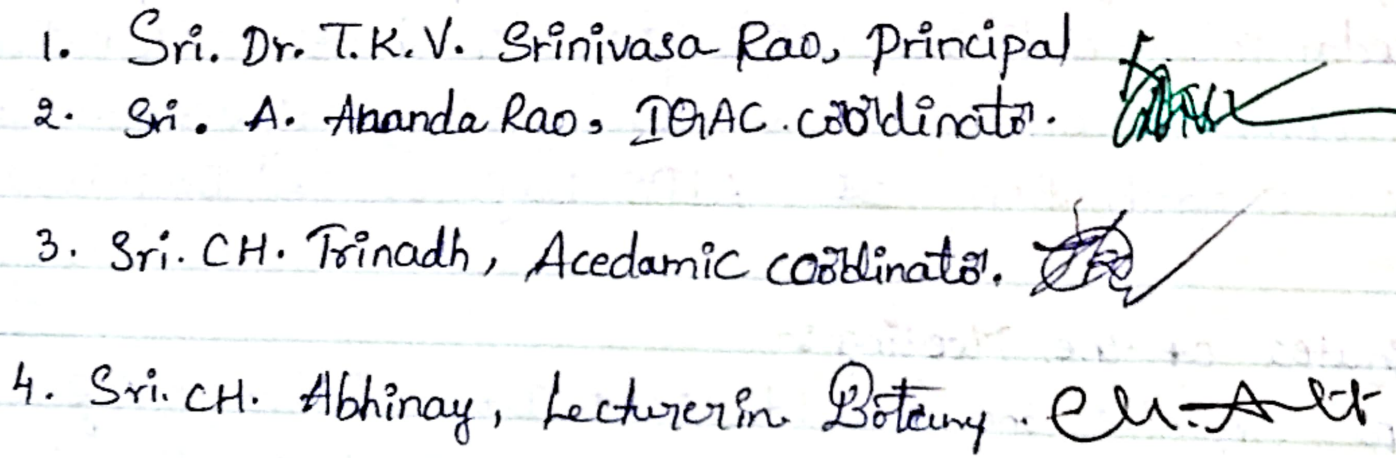 1. Sri. Dr. T.K.V. Srinivasa Rao, Principal
2. Sri. A. Ananda Rao, IQAC. coordinator.
3. Sri. CH. Trinadh, Acedamic coordinator.
4. Sri. CH. Abhinay, Lecturer in Botany.